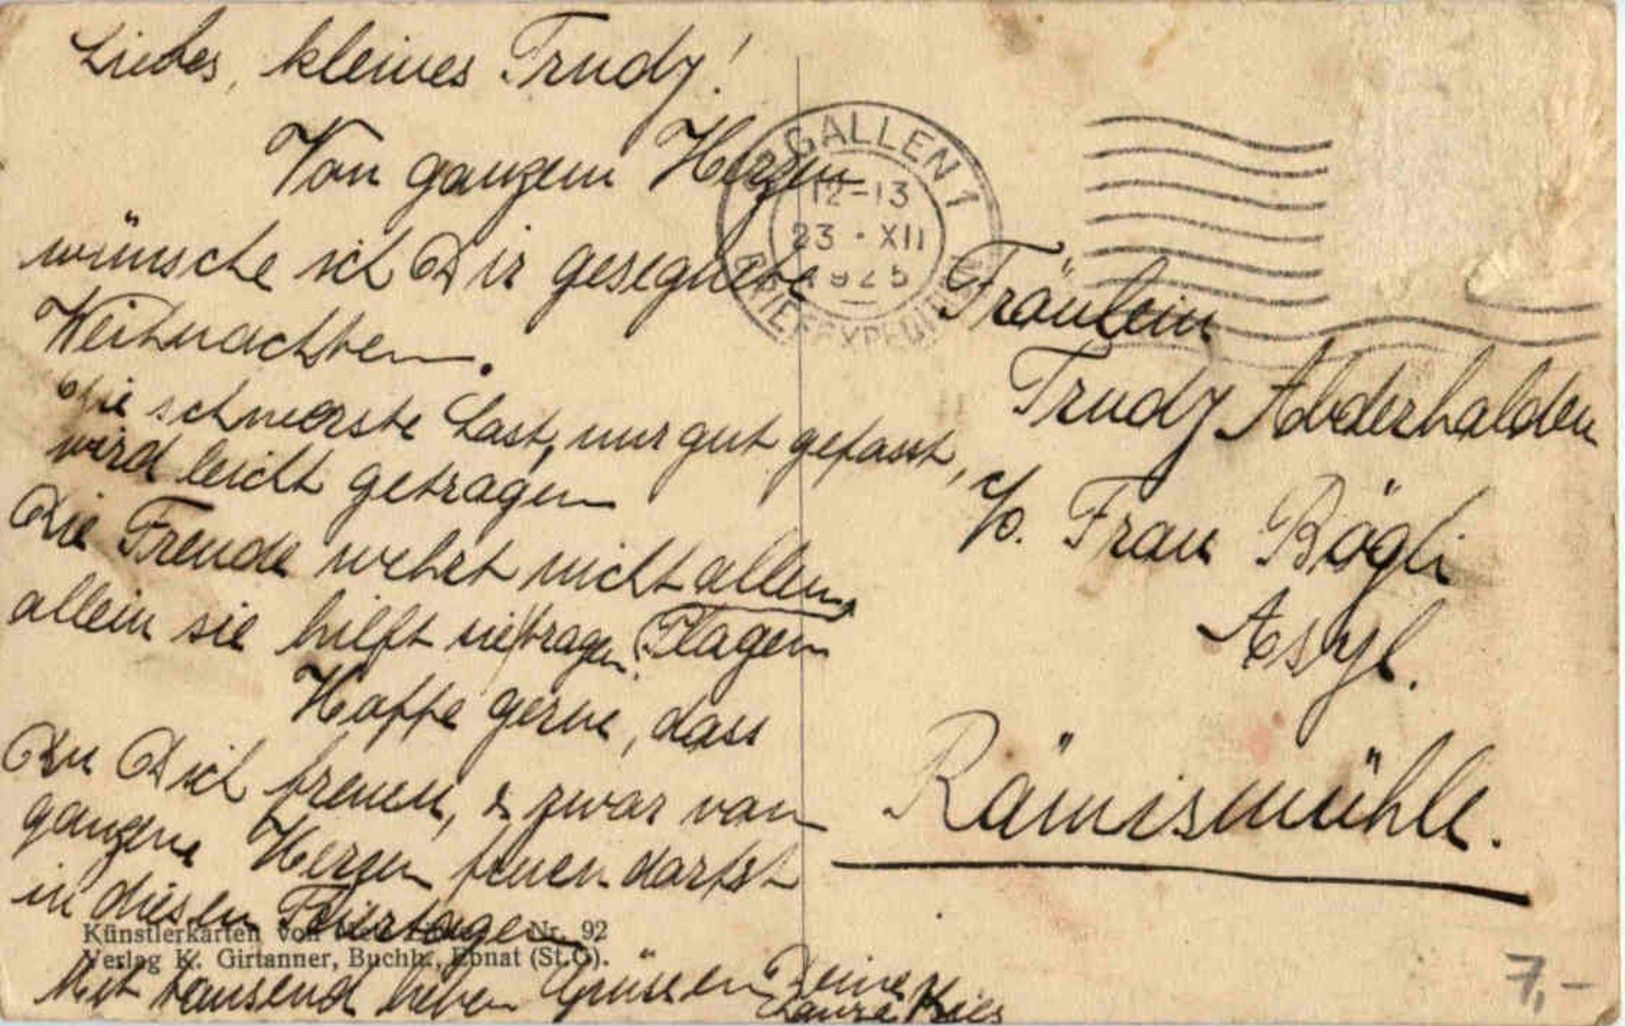 Liebes, kleines Trudy!
Von ganzem Herzen
wünsche ich Dir gesegnete
Weihnachten.
Die schwerste Last, nur gut gefasst,
wird leicht getragen
Die Freude wehrt nicht allen
Plagen
allein sie hilft sie tragen.
Hoffe gerne, dass
Du Dich freuen, & zwar von
ganzem Herzen freuen darfst
in diesen Feiertagen
Mit tausend lieben Grüssen Deine
Laura
GALLEN 1
12-13
23 · XII
1925
Fräulein
Trudy Abderhalden
c/o. Frau Bögli
Asyl.
Rämismühle.
Künstlerkarten von Nr. 92
Verlag K. Girtanner, Buchh., Ebnat (St.G).
7,-